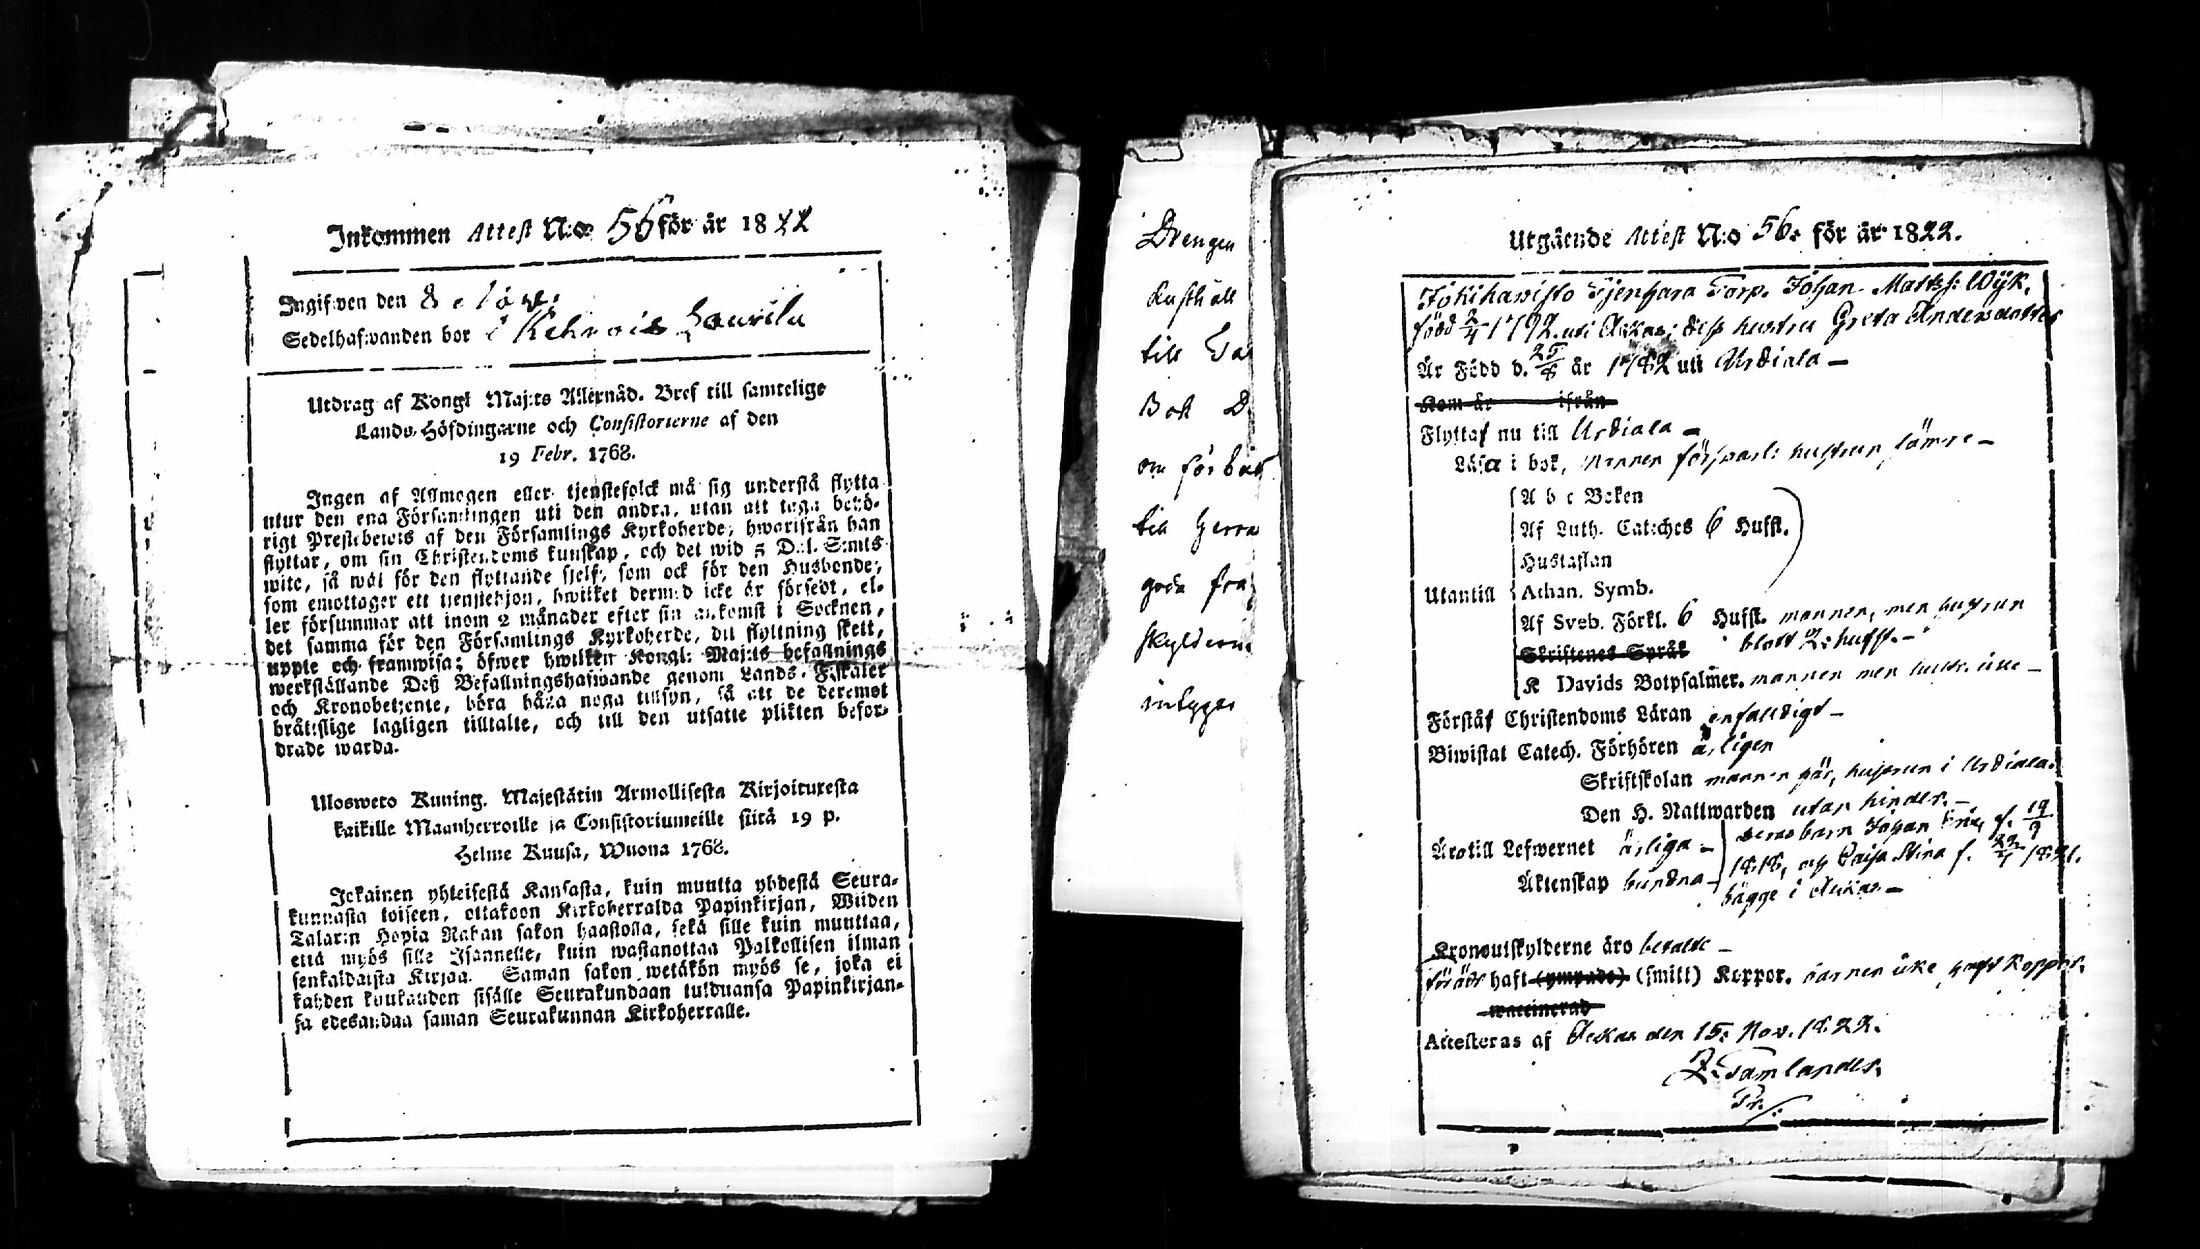 Inkommen Attest N:o 56 för år 1822
Ingifwen den
Sedelhafwanden bor i
Utdrag af Kongl Maj:ts Allernåd. Bref till samtelige
Lands-Höfdingarne och Consistorierne af den
19 Febr. 1768.
Ingen af Allmogen eller tjenstefolck må sig understå flytta
utur den ena Församlingen uti den andra, utan att taga behö-
rigt Prestebewis af den Församlings Kyrkoherde, hwarifrån han
flyttar, om sin Christendoms kunskap, och det wid 5 Dal. S:mts
wite, så wäl för den flyttande sjelf, som ock för den Husbonde,
som emottager ett tjenstehjon, hwilket dermed icke är försedt, el-
ler försummar att inom 2 månader efter sin ankomst i Socknen,
det samma för den Församlings Kyrkoherde, dit flyttning skett,
uppte och framwisa; öfwer hwilken Kongl: Maj:ts befallnings
werkställande Deß Befallningshafwande genom Lands-Fiskaler
och Kronobetjente, böra hålla noga tillsyn, så att de deremot
bråttslige lagligen tilltalte, och till den utsatte plikten befor-
drade warda.
Ulosweto Kuning. Majestätin Armollisesta Kirjoituxesta
kaikille Maanherroille ja Consistoriumeille siitä 19 p.
Helme Kuusa, Wuona 1768.
Jokainen yhteisestä Kansasta, kuin muutta yhdestä Seura-
kunnasta toiseen, ottakoon Kirkoherralda Papinkirjan, Wiiden
Talarin Hopia Rahan sakon haastolla, sekä sille kuin muuttaa,
että myös sille Isännelle, kuin wastanottaa Palkollisen ilman
senkaldaista Kirjaa. Saman sakon wetäkön myös se, joka ei
kahden kuukauden sisälle Seurakundaan tulduansa Papinkirjan-
sa edesandaa saman Seurakunnan Kirkoherralle.
Drengen
till
Bok D
om
till Herra
goda
intyger
Utgående Attest N:o 56. för år 1822.
Torp. Johan Matts: Wijk,
född 2/4 1792 uti Ackas; dess hustru Greta Andersdotter
Är Född d. 25/8 år 1782 uti Urdiala —
Kom år ifrån
Flyttaf nu till Urdiala —
Läsa i bok, mannen försvarl: hustrun sämre —
A b c Boken
Af Luth. Catches 6 Hufst.
Hustaflan
Utantill Athan. Symb.
Af Sveb. Förkl. 6 Hufst. mannen, men hustrun
blott 2: hufst. —
Skriftenes Språk
K Davids Botpsalmer. mannen men hustr. icke —
Förstår Christendoms Läran enfaldigt —
Biwistat Catech. Förhören årligen
Skriftskolan mannen här, hustrun i Urdiala.
Den H. Nattwarden utan hinder. —
Äro till Lefwernet ärliga — deras barn Johan Eric, f. 19/9
Äktenskap bundna — 1818, och Caija Stina f. 22/4 1821.
bägge i Ackas —
Kronoutskylderne äro betalde —
haft (ympade) (smitt) Koppor. barnen icke haft koppor.
waccinerad
Attesteras af Ackas den 15. Nov. 1822.
Tamlander.